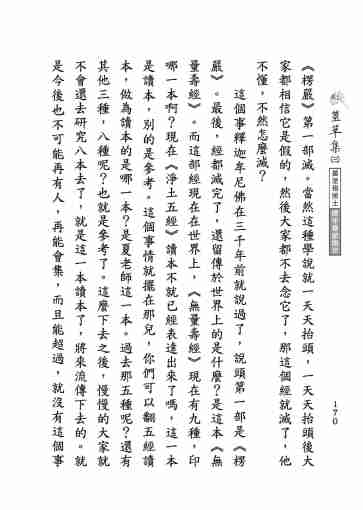 萱草集㈡
170
《楞嚴》第一部滅。當然這種學說就一天天抬頭，一天天抬頭後大
家都相信它是假的，然後大家都不去念它了，那這個經就滅了，他
不懂，不然怎麼滅？
這個事釋迦牟尼佛在三千年前就說過了，說頭第一部是《楞
嚴》。最後，經都滅完了，還留傳於世界上的是什麼？是這本《無
量壽經》。而這部經現在在世界上，《無量壽經》現在有九種，印
哪一本啊？現在《淨土五經》讀本不就已經表達出來了嗎，這一本
是讀本，別的是參考。這個事情就擺在那兒，你們可以翻五經讀
本，做為讀本的是哪一本？是夏老師這一本。過去那五種呢？還有
其他三種，八種呢？也就是參考了。這麼下去之後，慢慢的大家就
不會還去研究八本去了，就是這一本讀本了，將來流傳下去的。就
是今後也不可能再有人，再能會集，而且能超過，就沒有這個事